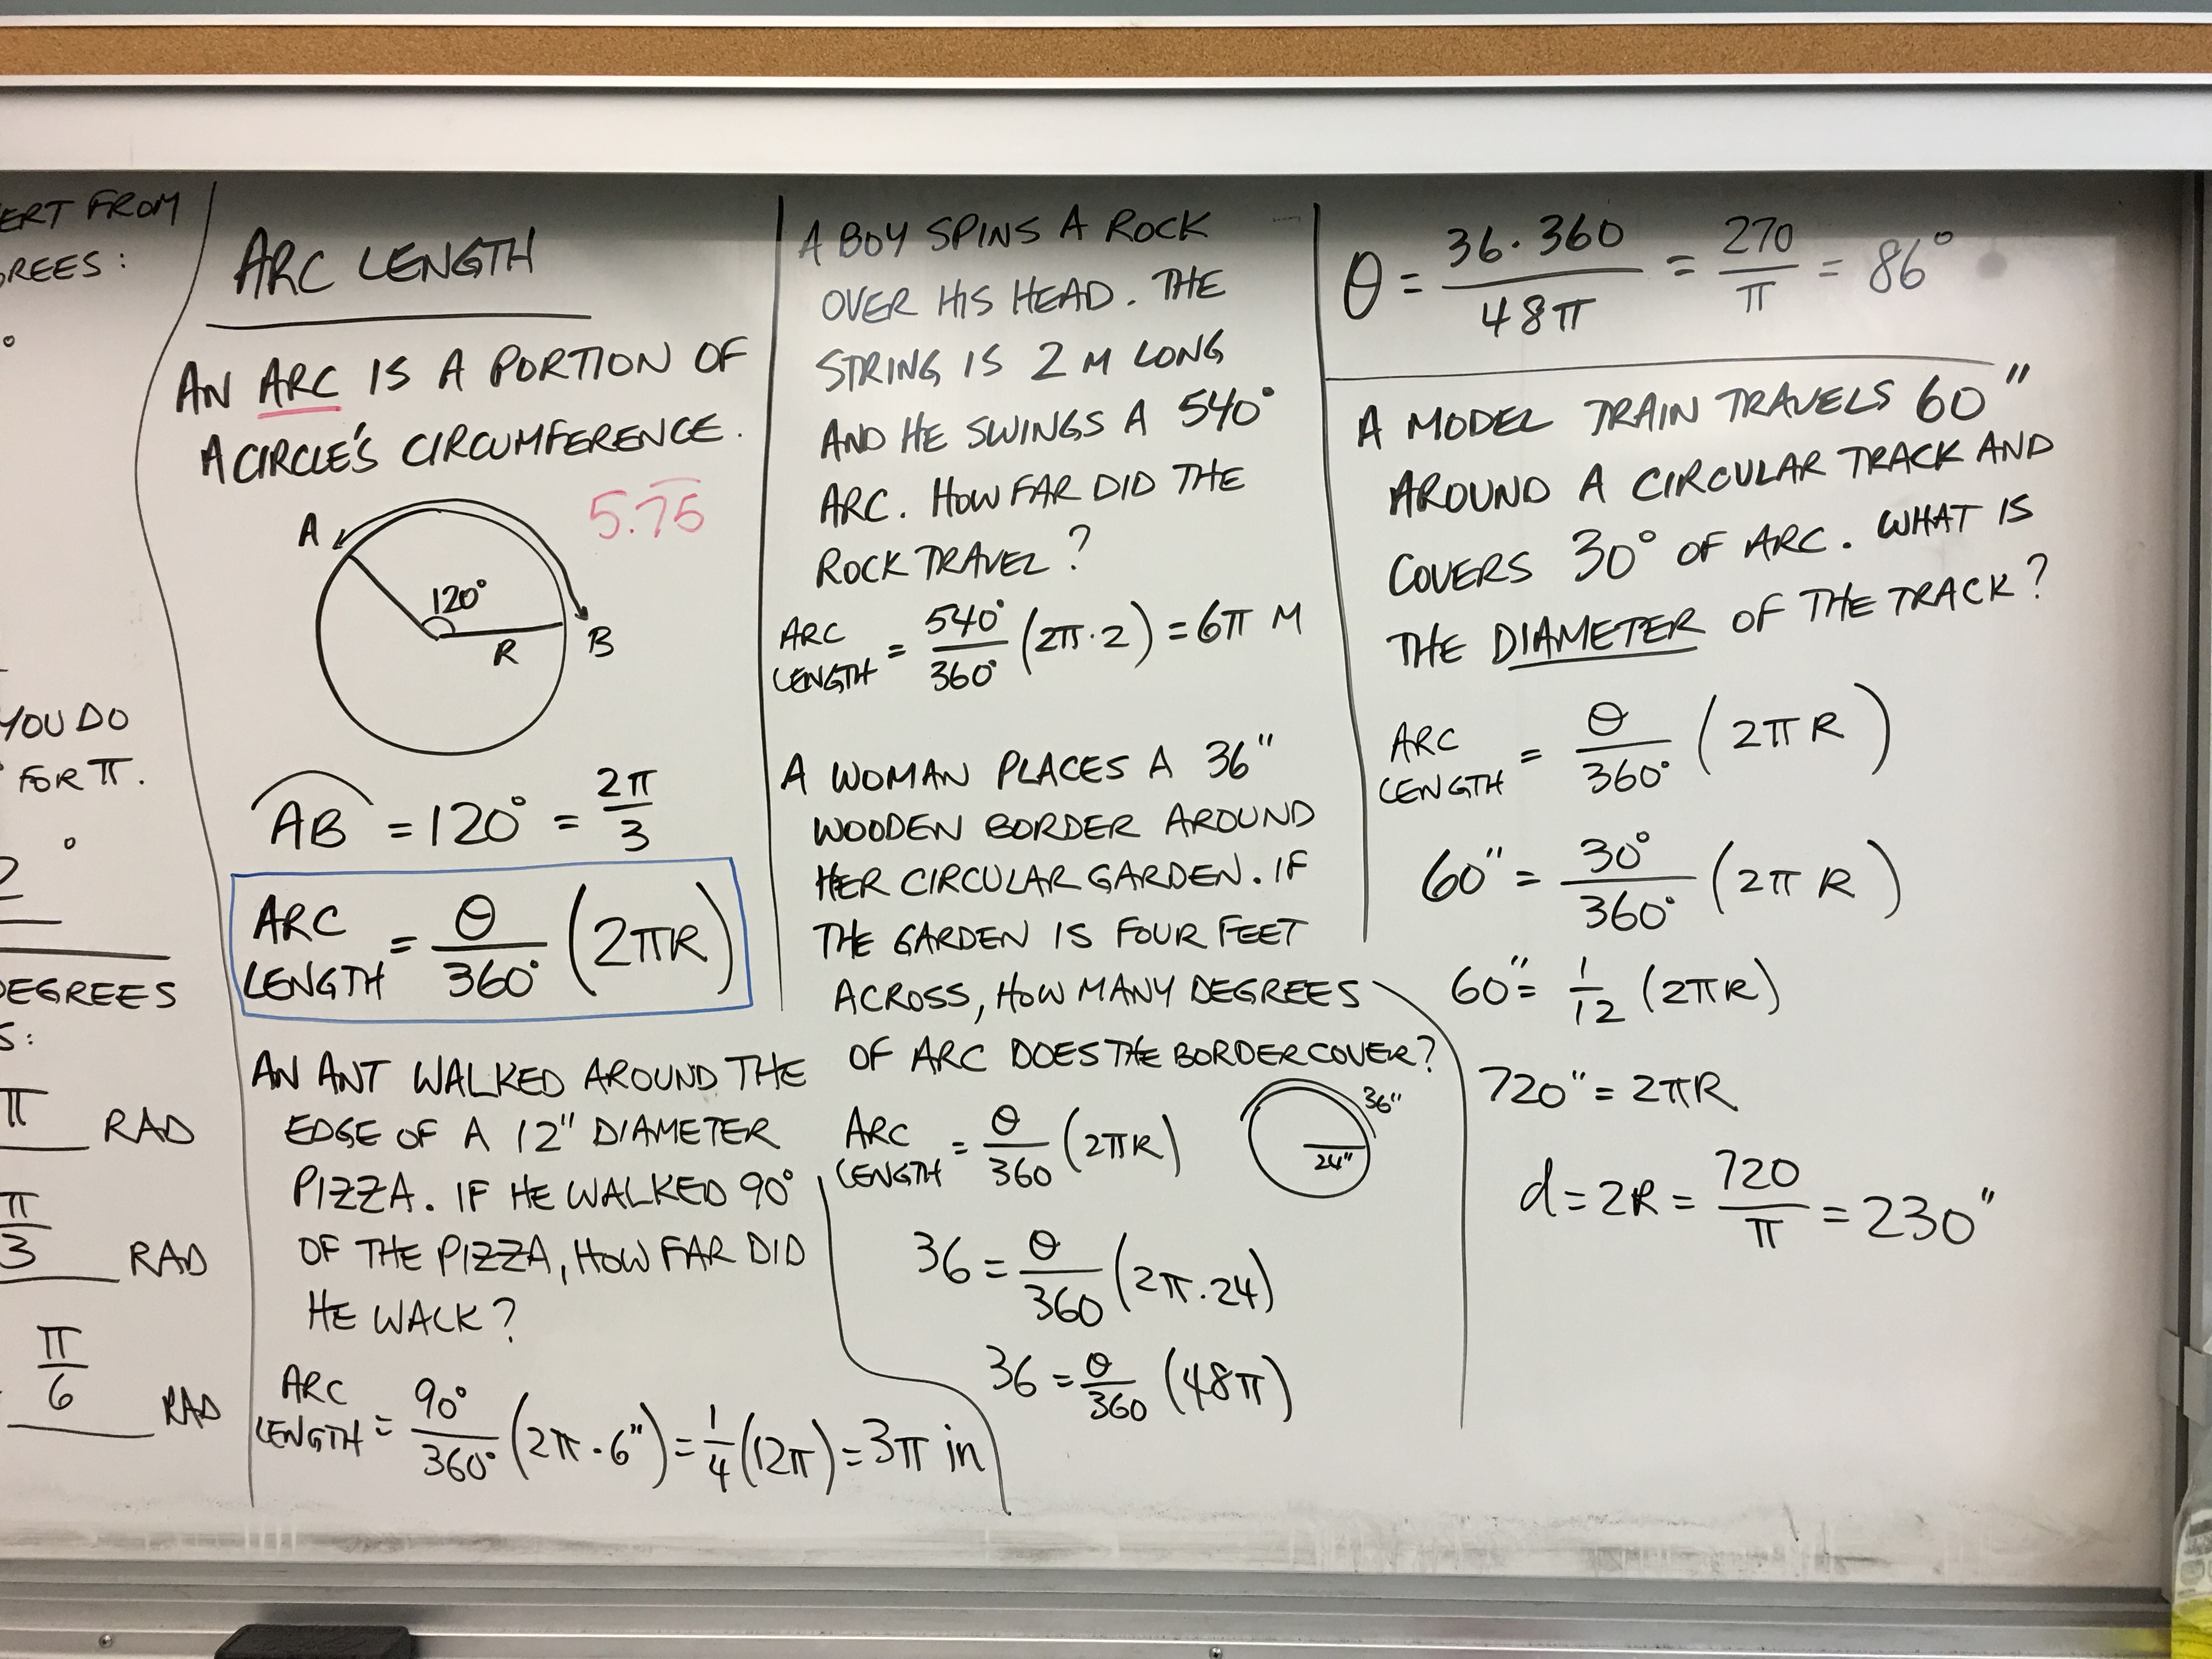 ERT FROM
GREES:
°
YOU DO
FOR π.
2 °
DEGREES
S:
π RAD
π/3 RAD
π/6 RAD
ARC LENGTH
AN ARC IS A PORTION OF
A CIRCLE'S CIRCUMFERENCE.
5.75
A
120°
R
B
AB = 120° = 2π/3
ARC LENGTH = θ/360° (2πR)
AN ANT WALKED AROUND THE
EDGE OF A 12" DIAMETER
PIZZA. IF HE WALKED 90°
OF THE PIZZA, HOW FAR DID
HE WALK?
ARC LENGTH = 90°/360° (2π · 6") = 1/4 (12π) = 3π in
A BOY SPINS A ROCK
OVER HIS HEAD. THE
STRING IS 2 M LONG
AND HE SWINGS A 540°
ARC. HOW FAR DID THE
ROCK TRAVEL?
ARC LENGTH = 540°/360° (2π · 2) = 6π M
A WOMAN PLACES A 36"
WOODEN BORDER AROUND
HER CIRCULAR GARDEN. IF
THE GARDEN IS FOUR FEET
ACROSS, HOW MANY DEGREES
OF ARC DOES THE BORDER COVER?
ARC LENGTH = θ/360 (2πR)
36"
24"
36 = θ/360 (2π · 24)
36 = θ/360 (48π)
θ = 36 · 360/48π = 270/π = 86°
A MODEL TRAIN TRAVELS 60"
AROUND A CIRCULAR TRACK AND
COVERS 30° OF ARC. WHAT IS
THE DIAMETER OF THE TRACK?
ARC LENGTH = θ/360° (2πR)
60" = 30°/360° (2πR)
60" = 1/12 (2πR)
720" = 2πR
d = 2R = 720/π = 230"